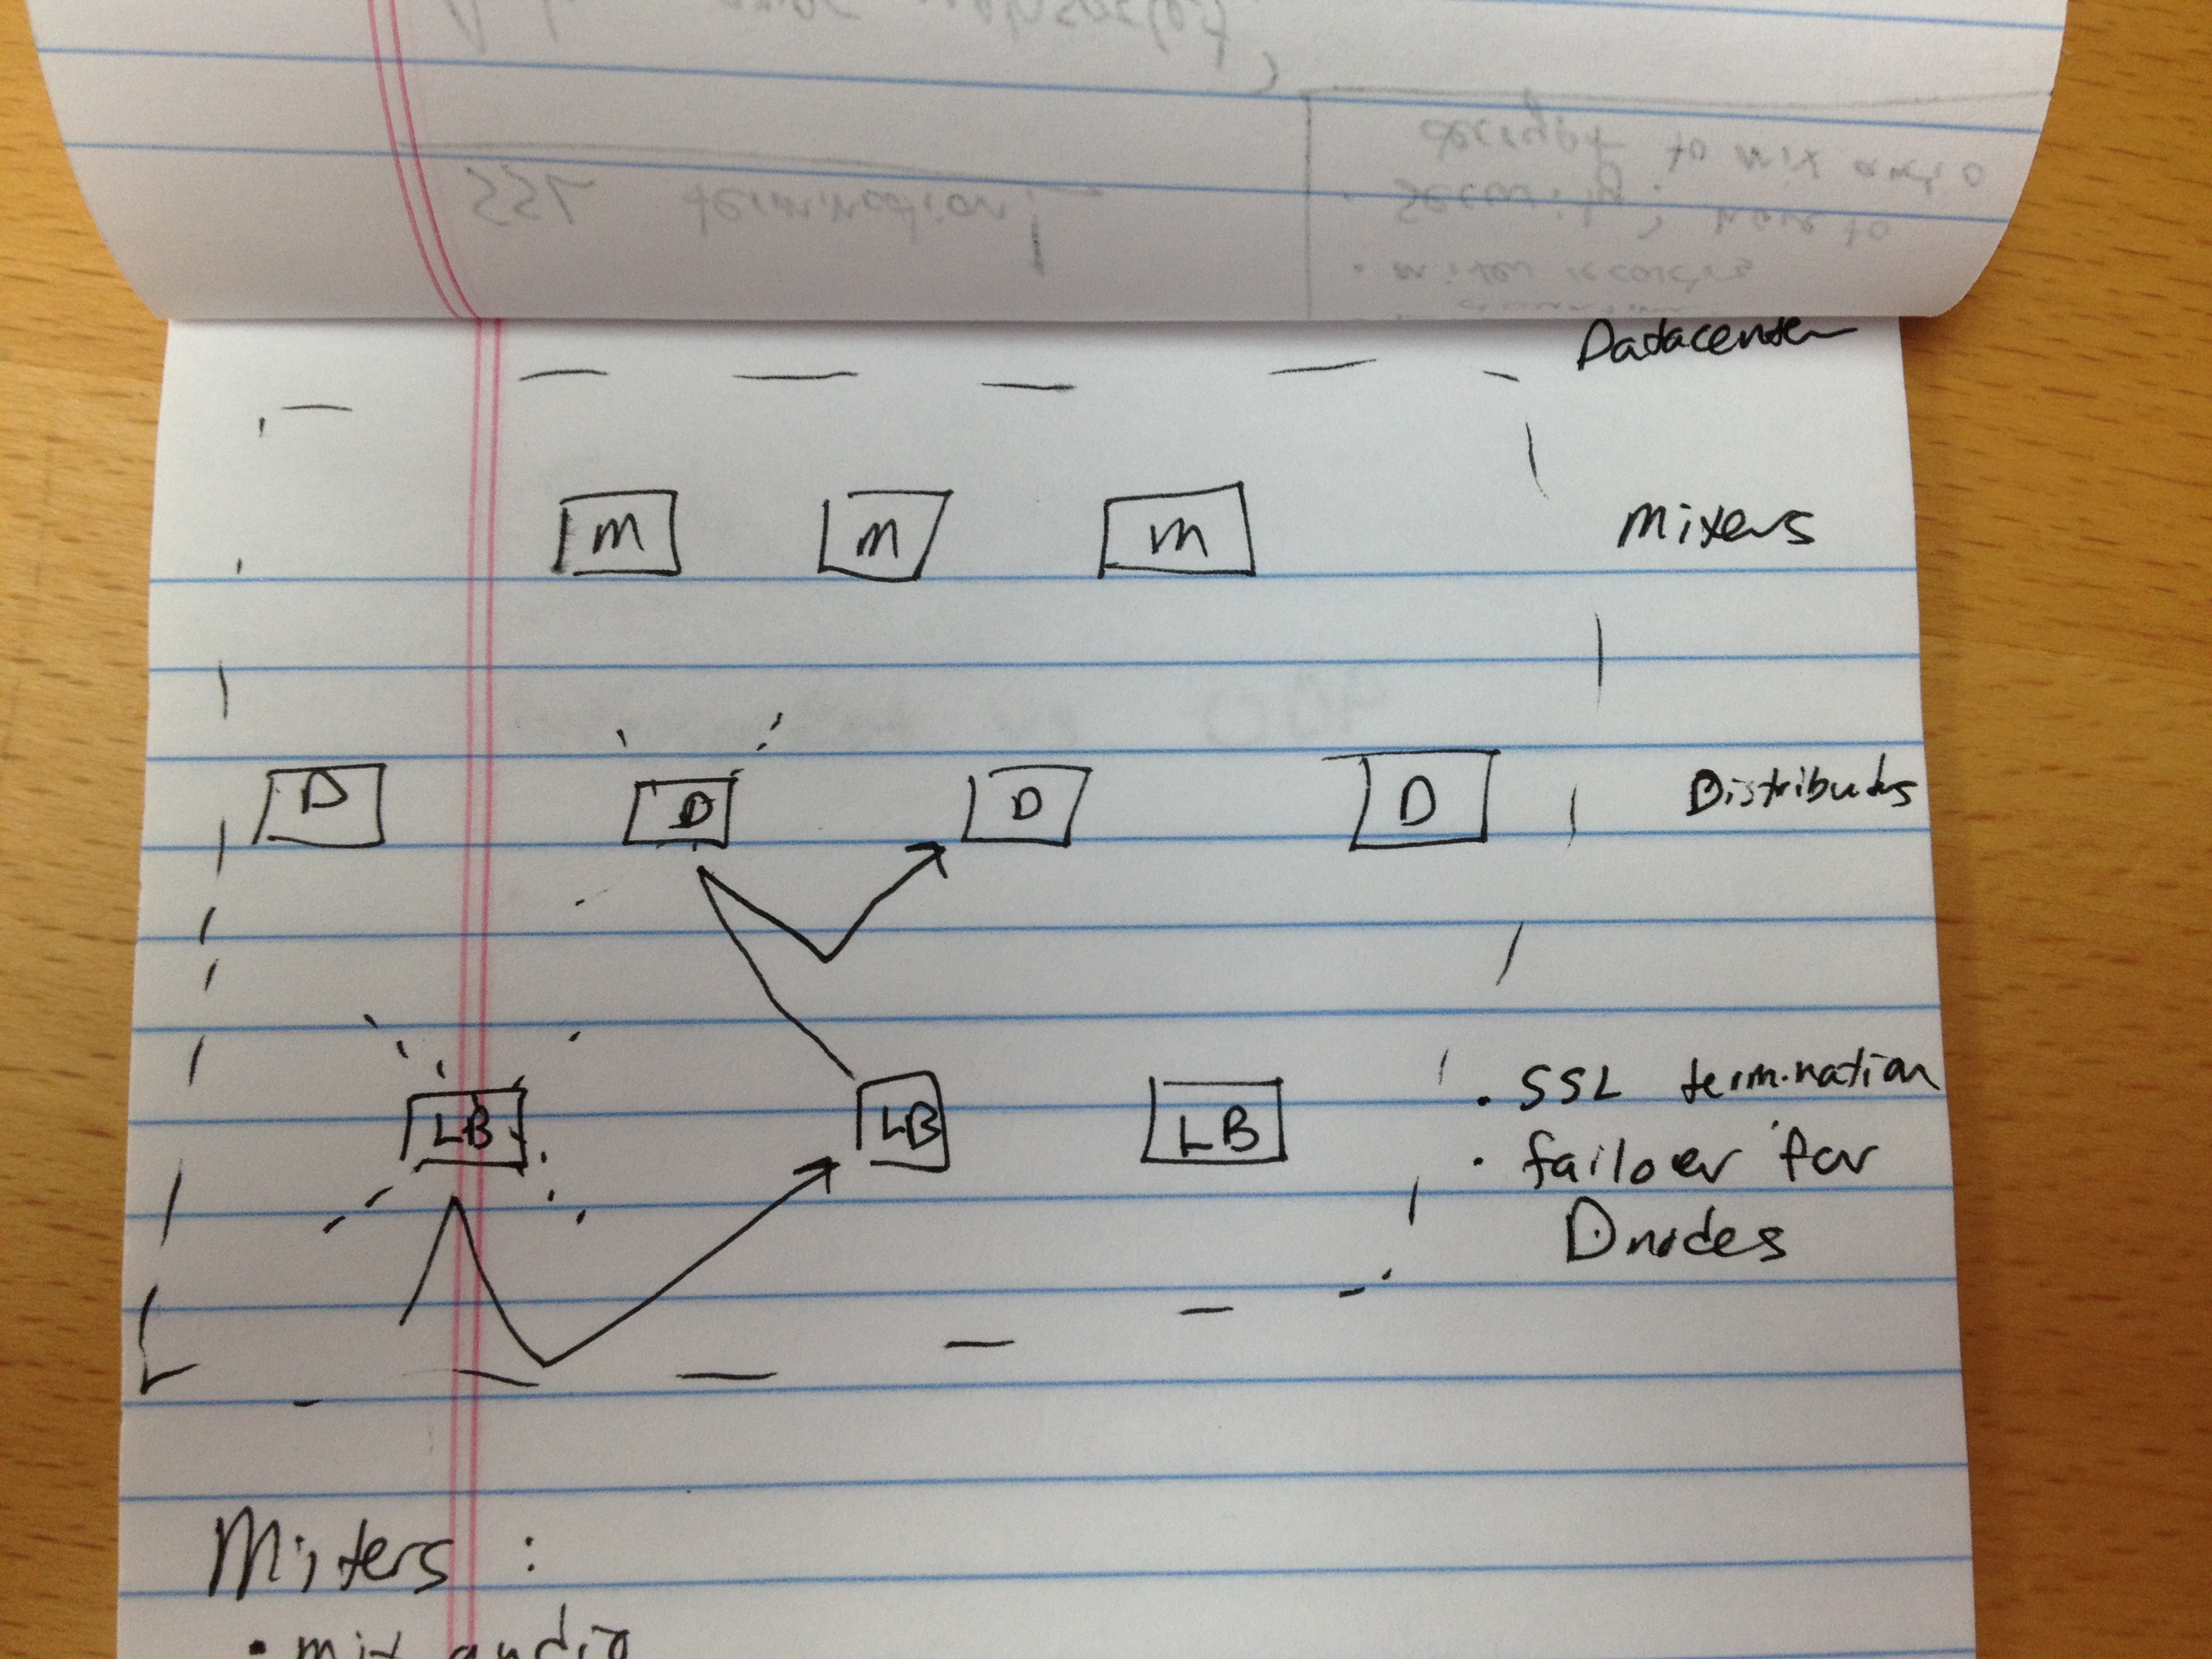 Datacenter
M M M Mixers
D D D D Distributes
LB LB LB
. SSL termination
. failover for
D nodes
Mixers :
. mix audio